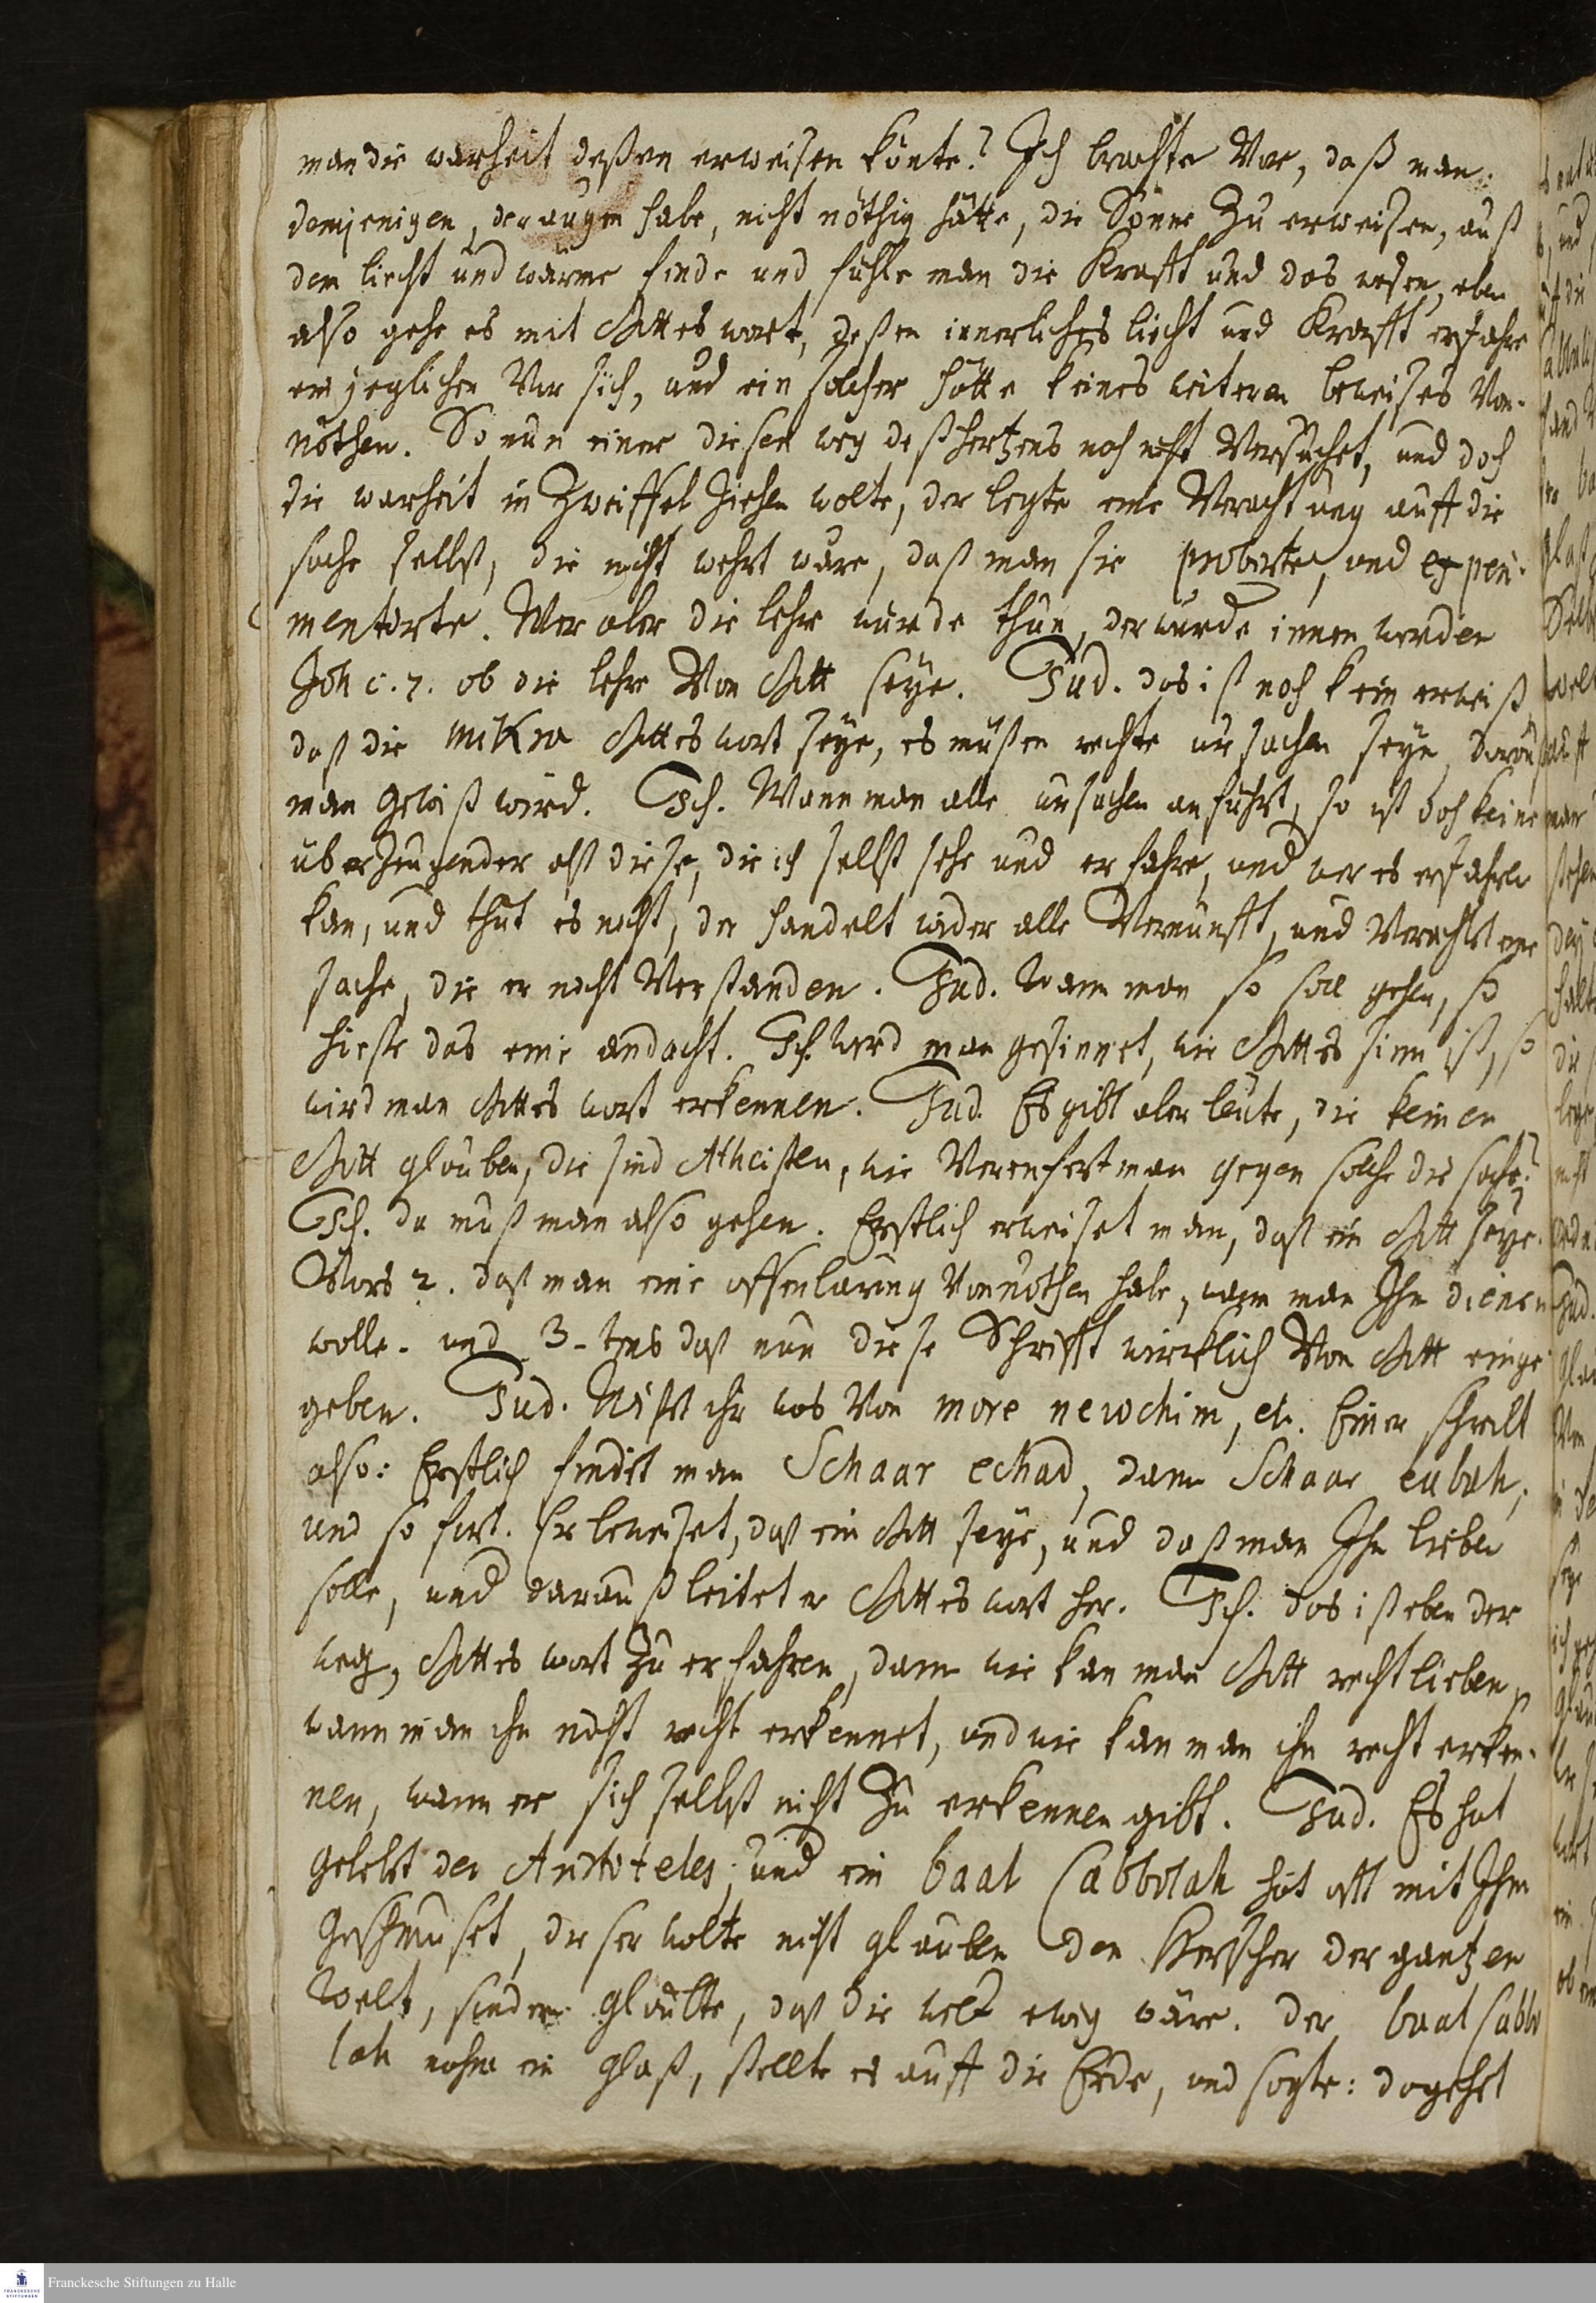 man die warheit deßen erweisen könte? Ich brachte Vor, daß man
demjenigen, der augen habe, nicht nöthig hätte, die Sonne Zu erweisen, auß
dem liecht und wärme finde und fühle man die Krafft und das wesen, eben
also gehe es mit Gottes wort, deßen innerliches liecht und Krafft erfahre
ein jeglicher Vor sich, und ein solcher hätte keines weitern beweises Von-
nöthen. So nun einer diesen weg deß hertzens noch nicht Versuchet, und doch
die warheit in Zweiffel Ziehen wolte, der legte eine Verachtung auff die
sache selbst, die nicht wehrt wäre, daß man sie probirte, und experi-
mentirte. Wer aber die lehre würde thun, der würde innen werden
Joh c. 7. ob die lehre Von Gott seye. Jud. das ist noch kein erweiß,
daß die mikra Gottes wort seye, es müßen rechte ursachen seyn, darauß
man gewiß wird. Ich. Wann man alle ursachen anführt, so ist doch keine
überzeugender alß diese, die ich selbst sehe und erfahre, und wer es erfahren
kan, und thut es nicht, der handelt wider alle Vernunfft, und Verachtet eine
sache, die er nicht Verstanden. Jud. Wann man so soll gehen, so
hieße das eine andacht. Ich. Wird man gesinnet, wie Gottes sinn ist, so
wird man Gottes wort erkennen. Jud. Es gibt aber leute, die keinen
Gott glauben, die sind Atheisten, wie man gegen solche die sache?
Ich. da muß man also gehen. Erstlich erweiset man, daß ein Gott seye.
Vors 2. daß man eine offenbarung Vonnöthen habe, wann man Ihm dienen
wolle. und 3-tens daß nun diese Schrifft wircklich Von Gott einge
geben. Jud. Wißt ihr was Von more newochim, etc. Einer schreibt
also: Erstlich findet man Schaar echad, dann Schaar
und so fort. Er beweiset, daß ein Gott seye, und daß man Ihn lieben
solle, und darauß leitet er Gottes wort her. Ich. das ist eben der
weg, Gottes wort Zu erfahren, dann wie kan man Gott recht lieben,
wann man ihn nicht recht erkennet, und wie kan man ihn recht erken-
nen, wann er sich selbst nicht Zu erkennen gibt. Jud. Es hat
gelebt der Aristoteles, und ein baal Cabbolah hat offt mit Ihm
geschmuset, dieser wolte nicht glauben den Herscher der gantzen
Welt, sondern glaubte, daß die welt ewig wäre. Der baal Cabbo
lah nahm ein glaß, stellte es auff die Erde, und sagte: da gehet
Franckesche Stiftungen zu Halle